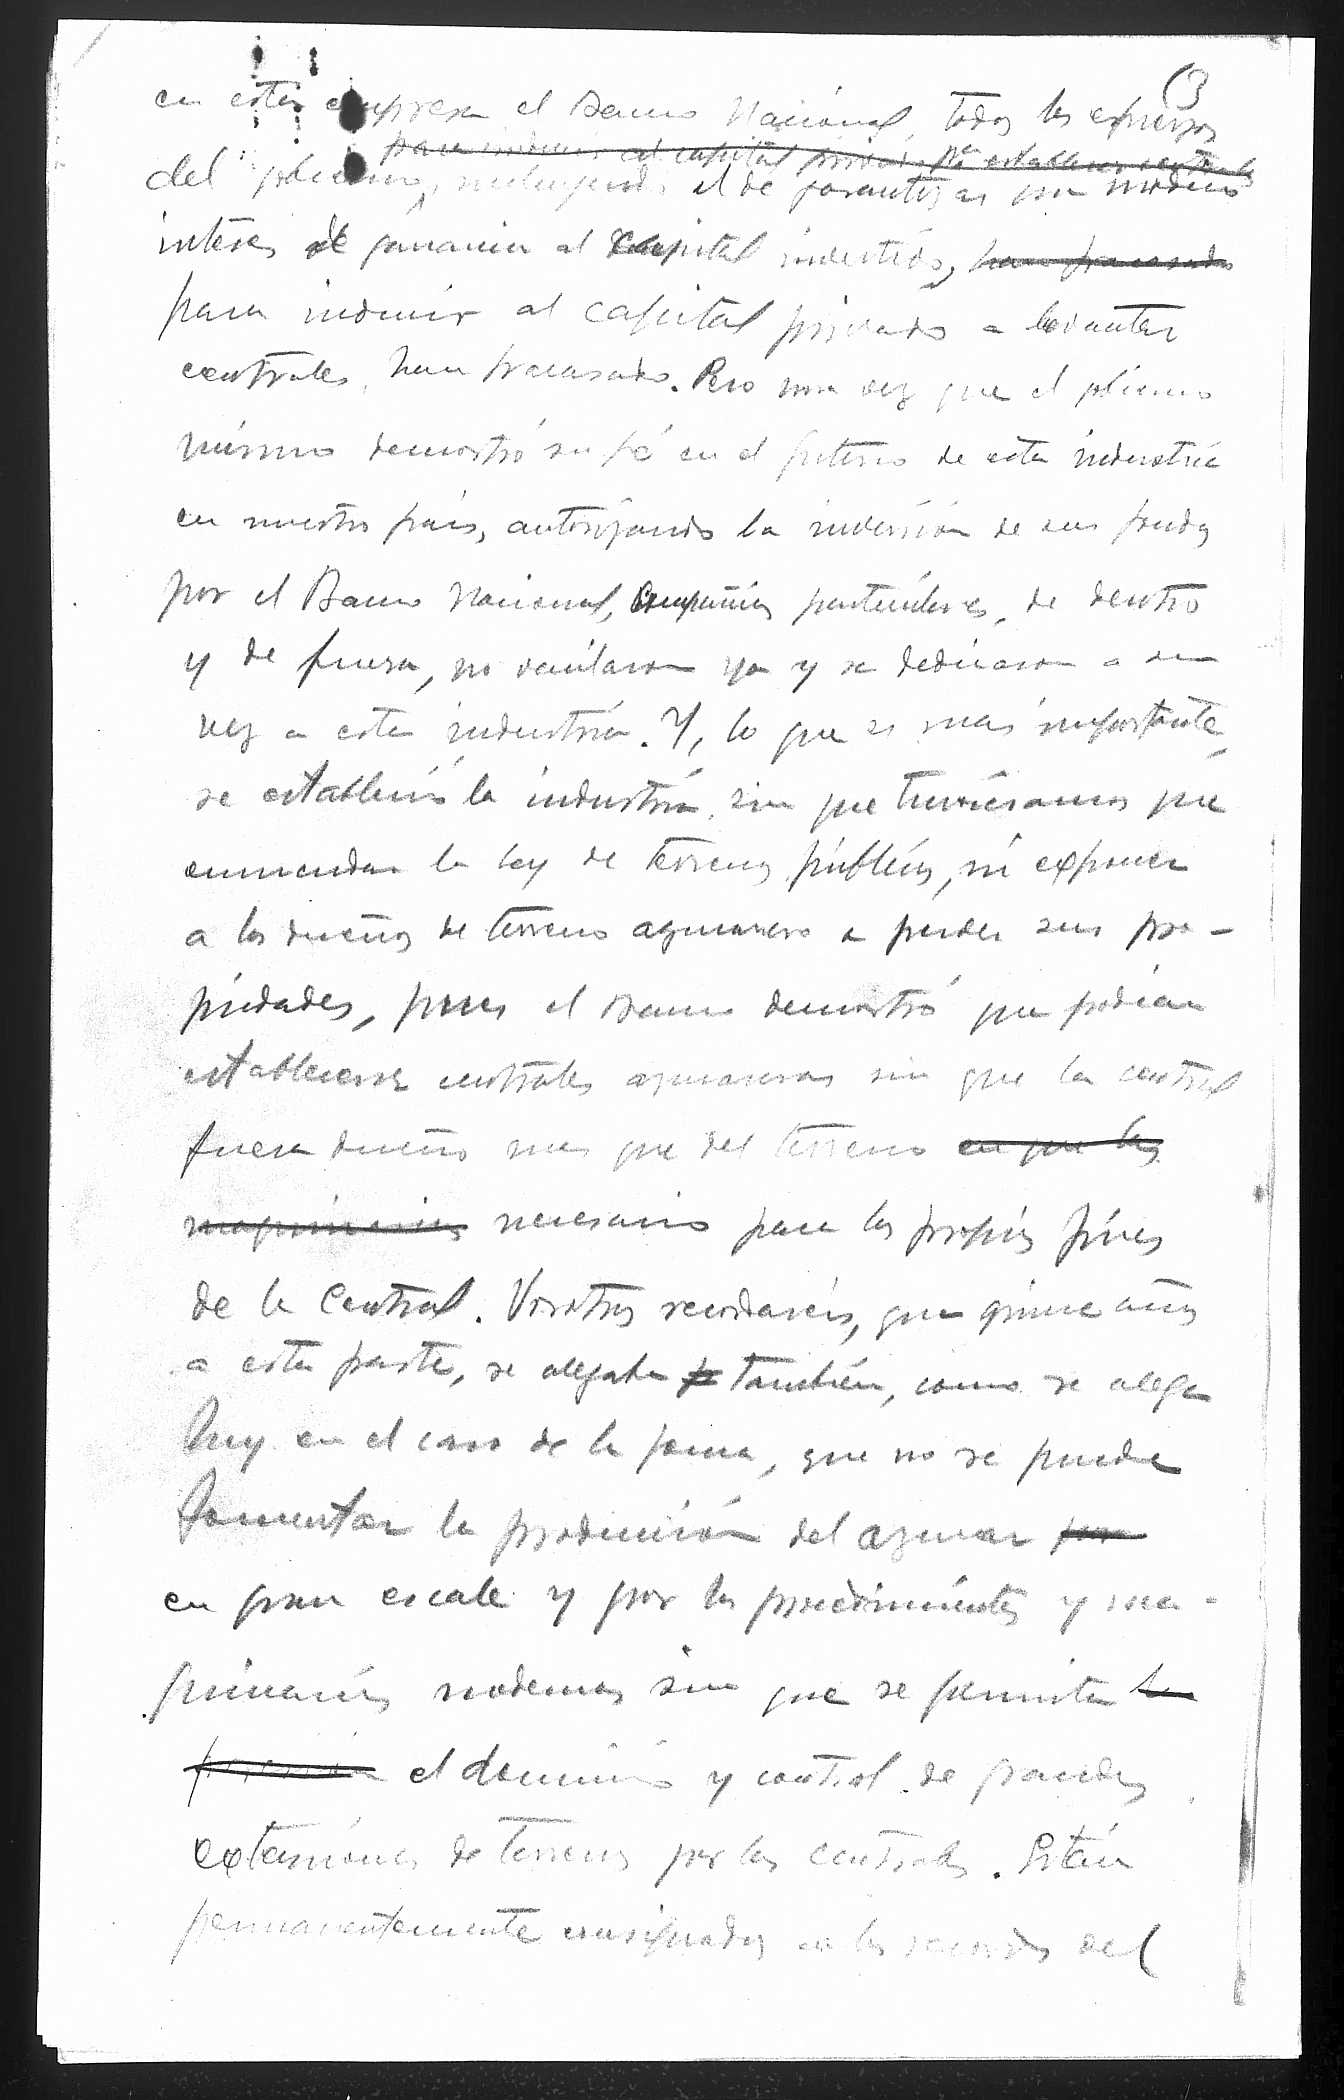 (3
en esta empresa el Banco Nacional, todos los esfuerzos
para inducir al capital privado pa establecer centrales
del gobierno, incluyendo el de garantizar un modico
interes de ganancia al capital invertido, han fracasado
para inducir al capital privado a levantar
centrales, han fracasado. Pero una vez que el gobierno
mismo demostró su fé en el futuro de esta industria
en nuestro país, autorizando la inversión de sus fondos
por el Banco Nacional, Compañias particulares, de dentro
y de fuera, no vacilaron ya y se dedicaron a su
vez a esta industria. Y, lo que es mas importante,
se estableció la industria, sin que tuvieramos que
enmendar la ley de terrenos públicos, ni exponer
a los dueños de terreno azucarero a perder sus pro-
piedades, pues el Banco demostró que podian
establecerse centrales azucareras sin que la central
fuera dueño mas que del terreno en que las
maquinarias necesario para los propios fines
de la Central. Vosotros recordareis, que quince años
a esta parte, se alegaba también, como se alega
hoy en el caso de la goma, que no se puede
fomentar la producción del azucar por
en gran escala y por los procedimientos y ma-
quinarias modernas sin que se permita la
posesión el dominio y control de grandes
extensiones de terrenos por las centrales. Están
permanentemente consignados en los records del